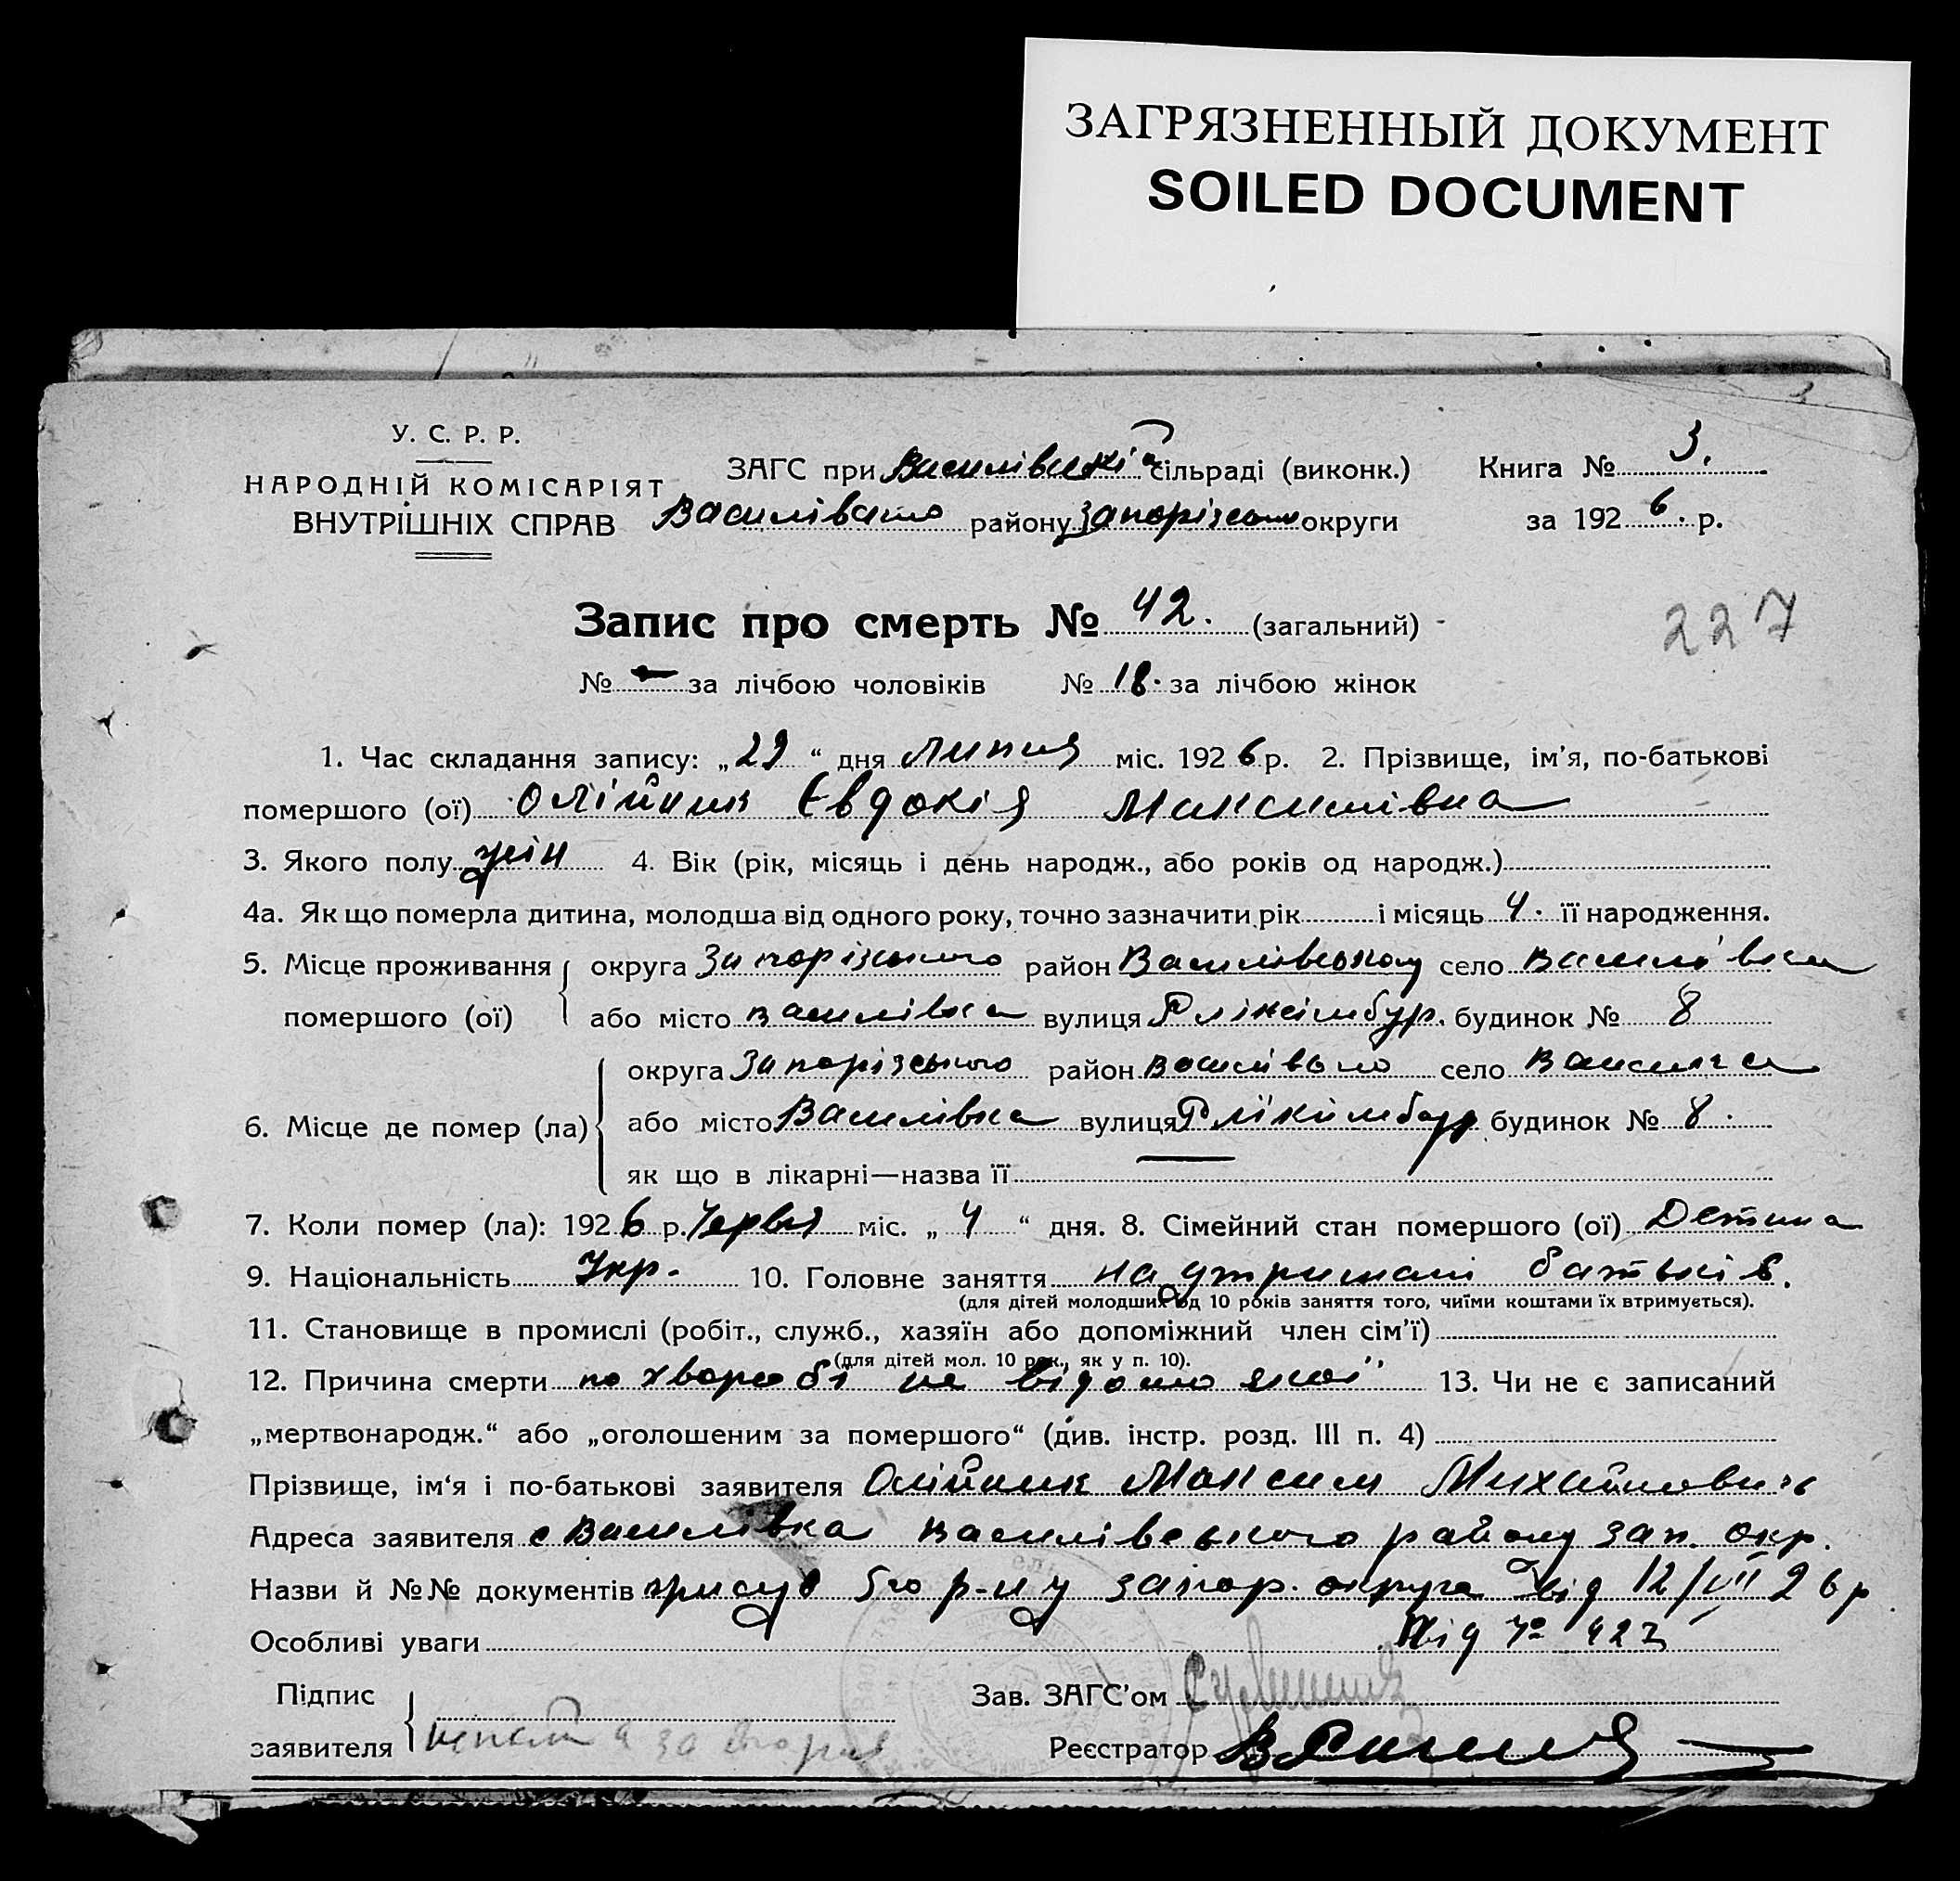 ЗАГРЯЗНЕННЫЙ ДОКУМЕНТ
SOILED DOCUMENT
У. С. Р. Р.
НАРОДНІЙ КОМІСАРІЯТ
ВНУТРІШНІХ СПРАВ
ЗАГС при сільраді (виконк.)
району Запорізько округи
Книга № 3.
за 1926. р.
Запис про смерть № 42. (загальний)
227
№ — за лічбою чоловіків № 18. за лічбою жінок
1. Час складання запису: „29“ дня Липня міс. 1926 р. 2. Прізвище, ім'я, по-батькові
помершого (ої) Олійник Євдокія Максимівна
3. Якого полу жін 4. Вік (рік, місяць і день народж., або років од народж.)
4а. Як що померла дитина, молодша від одного року, точно зазначити рік і місяць 4. її народження.
5. Місце проживання помершого (ої) округа Запорізького район Василівському село Василівка
або місто Василівка вулиця будинок № 8
6. Місце де помер (ла) округа Запорізького район село
або місто Василівка вулиця будинок № 8.
як що в лікарні—назва її —
7. Коли помер (ла): 1926 р. Червня міс. „4“ дня. 8. Сімейний стан помершого (ої) Детина
9. Національність Укр. 10. Головне заняття на утримані батьків.
(для дітей молодших од 10 років заняття того, чиїми коштами їх втримується).
11. Становище в промислі (робіт., служб., хазяїн або допоміжний член сім'ї)
(для дітей мол. 10 рок., як у п. 10).
12. Причина смерти по хворобі не відомо якої 13. Чи не є записаний
„мертвонародж.“ або „оголошеним за помершого“ (див. інстр. розд. III п. 4)
Прізвище, ім'я і по-батькові заявителя Олійник Максим Михайлович
Адреса заявителя с Василівка Василівського району зап. окр.
Назви й №№ документів присуд 5го р-ну запор. округа від 12/VII 26 р
Особливі уваги від 423
Підпис
заявителя
Зав. ЗАГС'ом
Реєстратор